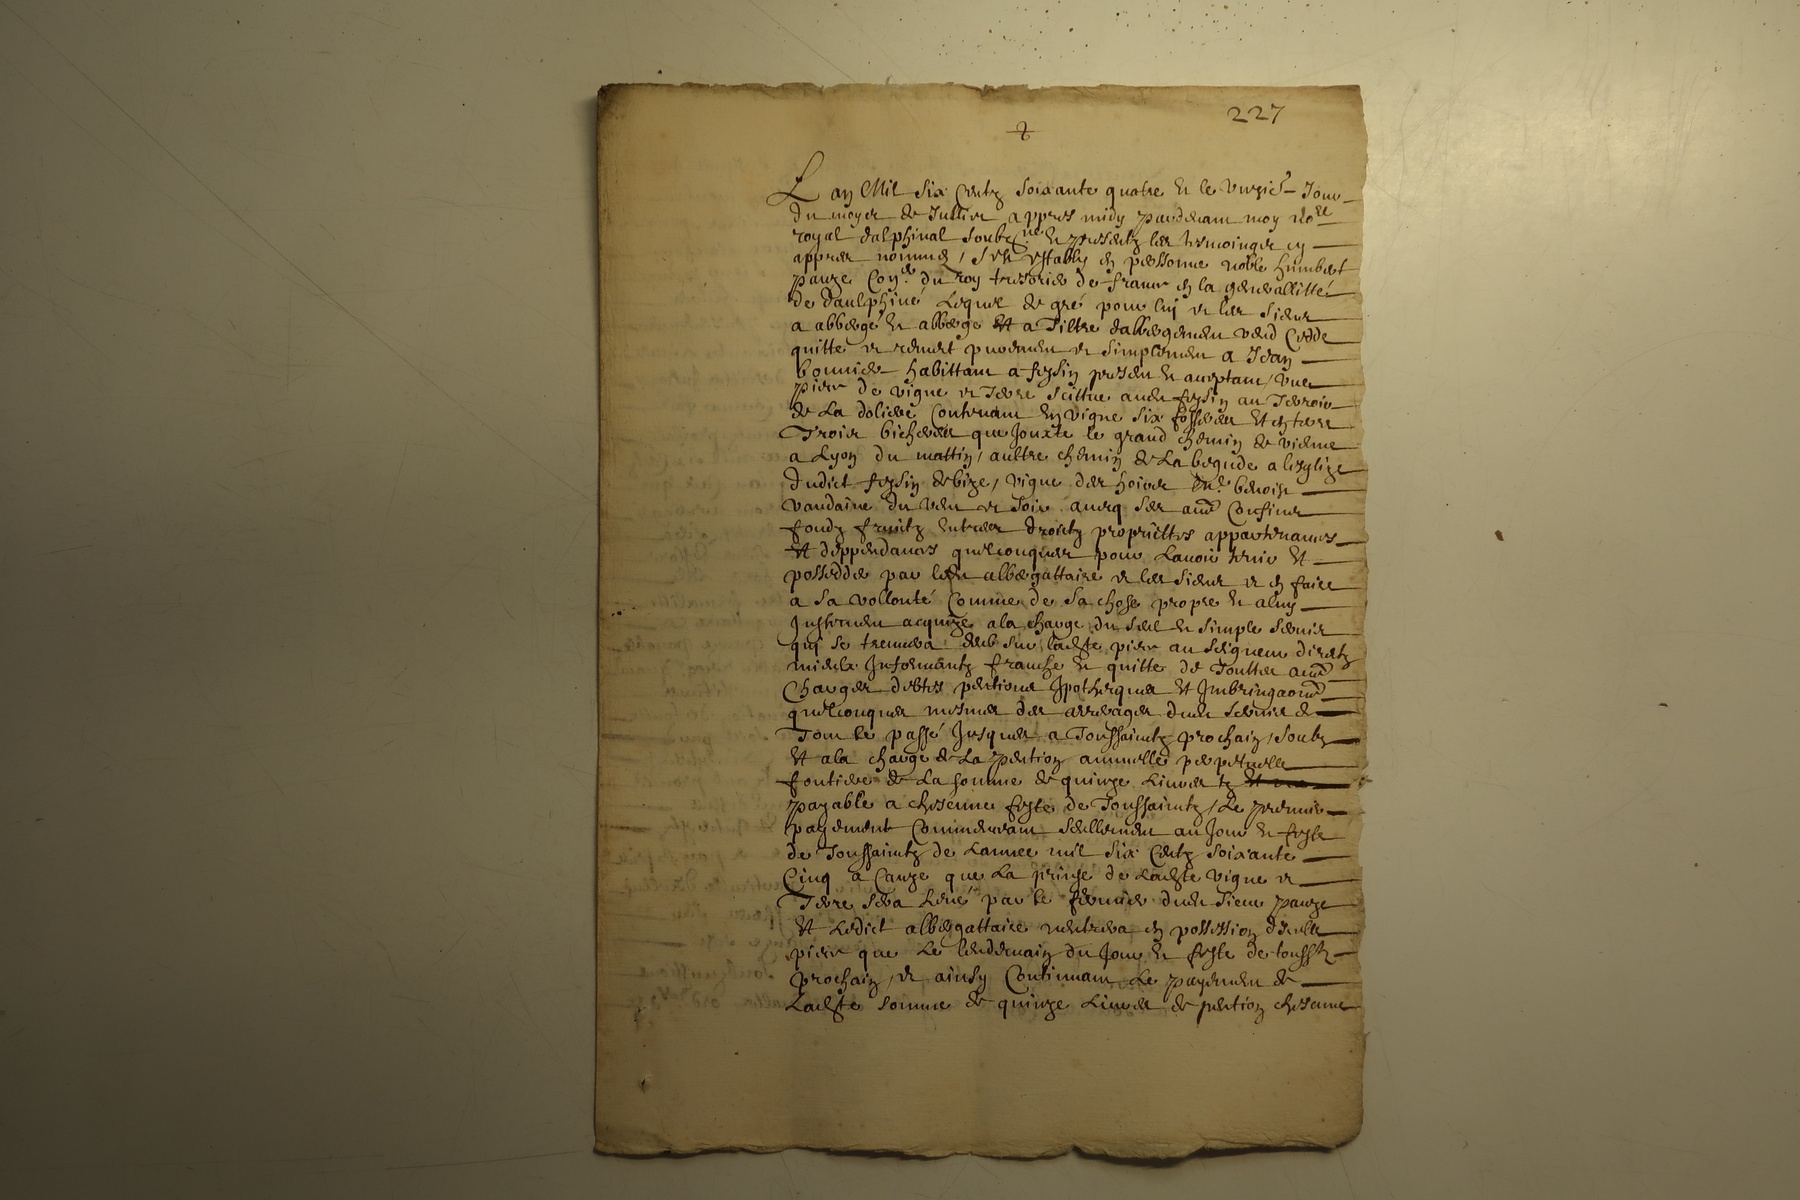 227
Lan Mil six Centz soixante quatre et le vingtie Jour
du moys de Juillet appres midy pardevant moy nore
royal dalphinal soubzne et presentz les tesmoingz cy
appres nommés, sest estably en personne noble humbert
pauze Coner du roy tresorier de france en la generallitté
de daulphiné Lequel de gré pour luy et les siens
a abbergé et abberge et a Tiltre dalbergement vend Cedde
quitte et remet purement et simplement a Jean
bonnier habittant a feysin present et acceptant, une
piece de vigne et Terre scittue audit feysin au Terroir
de La doliere Contenant En vigne six fosserées Et en terre
Trois bicherées que Jouxte le grand chemin de vienne
a Lyon du mattin, aultre chemin de La begude a lesglize
dudict feysin de bize, vigne des hoirs benoist
vaudaine du vent et soir avecq ses aues Confins
fondz fruictz Entrées droictz propriettes appartenances
Et deppendances quelconques pour Lavoir tenir Et
possedder par ledit albergattaire et les siens et en faire
a sa vollonté Comme de sa chose propre et a luy
Justement acquize a la charge du seel et simple servis
qui se treuvera deub sur ladite piece au seigneur directz
mieulx Informantz franche et quitte de Touttes aues
Charges debtes pentions Ipotheques Et Imbringaons
quelconques mesmes des arreyrages dudit servis de
Tout le passé Jusques a Toussaintz prochain, soubz
Et a la charge de La pention annuelle perpetuelle
fontiere de La somme de quinze Livres tz
payable a chescune feste de Toussaintz, Le premier
payement Commencant seullement au Jour et feste
de Toussaintz de Lannee mil six Centz soixante
Cinq a Cauze que La prinse de Ladite vigne et
Terre sera Levé par le fermier dudit sieur pauze
Et Ledict albergattaire nentrera en possession dicelle
piece que Le lendemain du Jour et feste de toussts
prochain, et ainsy Continuant Le payement de
Ladite somme de quinze Livres de pention chescune